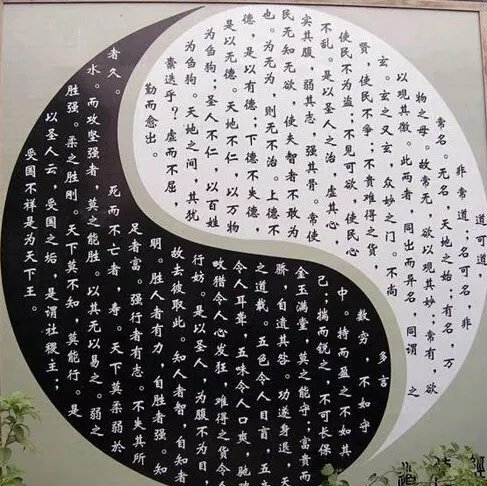 道可道，
非常道；名可名，非
常名。无名，天地之始；有名，万
物之母。故常无，欲以观其妙；常有，欲
以观其徼。此两者，同出而异名，同谓之
玄。玄之又玄，众妙之门。不尚
贤，使民不争；不贵难得之货，
使民不为盗；不见可欲，使民心
不乱。是以圣人之治，虚其心，
实其腹，弱其志，强其骨。常使
民无知无欲，使夫智者不敢为
也。为无为，则无不治。上德不
德，是以有德；下德不失德，
是以无德。天地不仁，以万物
为刍狗；圣人不仁，以百姓
为刍狗。天地之间，其犹
迭乎？虚而不屈，
勤而愈出。
多言
数穷，不如守
中。持而盈之不如其
己；揣而锐之，不可长保
金玉满堂，莫之能守；富贵而
骄，自道其咎。功遂身退，天
之道哉。五色令人目盲，五
令人耳聋，五味令人口爽，驰
畋猎令人心发狂，难得之货令人
行妨。是以圣人，为腹不为目，
故去彼取此。知人者智，自知
明。胜人者有力，自胜者强。知
足者富。强行者有志。不失其所
者久。死而不亡者，寿。天下莫柔弱於
水。而攻坚强者，莫之能胜。以其无以易之。弱之
胜强。柔之胜刚。天下莫不知，莫能行。是
以圣人云，受国之垢，是谓社稷主；
受国不祥是为天下王。